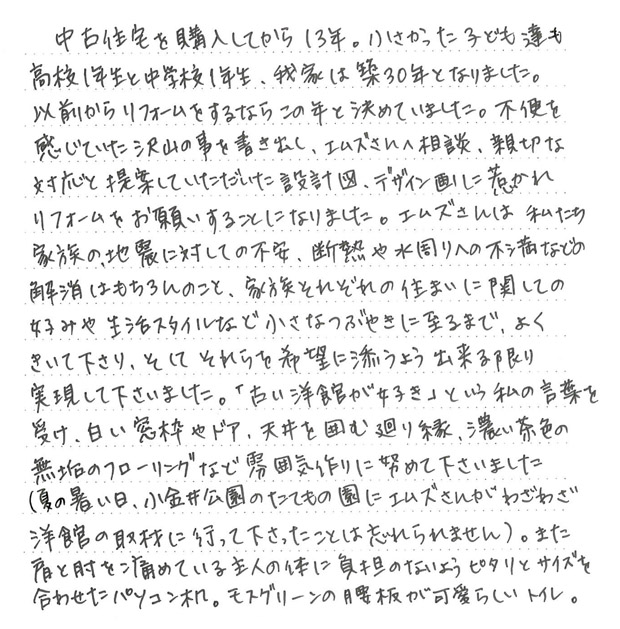 中古住宅を購入してから13年。小さかった子ども達も
高校1年生と中学校1年生、我家は築30年となりました。
以前からリフォームをするならこの年と決めていました。不便を
感じていた沢山の事を書き出し、エムズさんへ相談、親切な
対応と提案していただいた設計図、デザイン画に惹かれ
リフォームをお願いすることになりました。エムズさんは私たち
家族の、地震に対しての不安、断熱や水周りへの不満などの
解消はもちろんのこと、家族それぞれの住まいに関しての
好みや生活スタイルなど小さなつぶやきに至るまで、よく
きいて下さり、そして それらを希望に添うよう出来る限り
実現して下さいました。「古い洋館が好き」という私の言葉を
受け、白い窓枠やドア、天井を囲む廻り縁、濃い茶色の
無垢のフローリングなど雰囲気作りに努めて下さいました
(夏の暑い日、小金井公園のたてもの園にエムズさんがわざわざ
洋館の取材に行って下さったことは忘れられません)。また
肩と肘を痛めている主人の体に負担のないようピタリとサイズを
合わせたパソコン机。モスグリーンの腰板が可愛らしいトイレ。